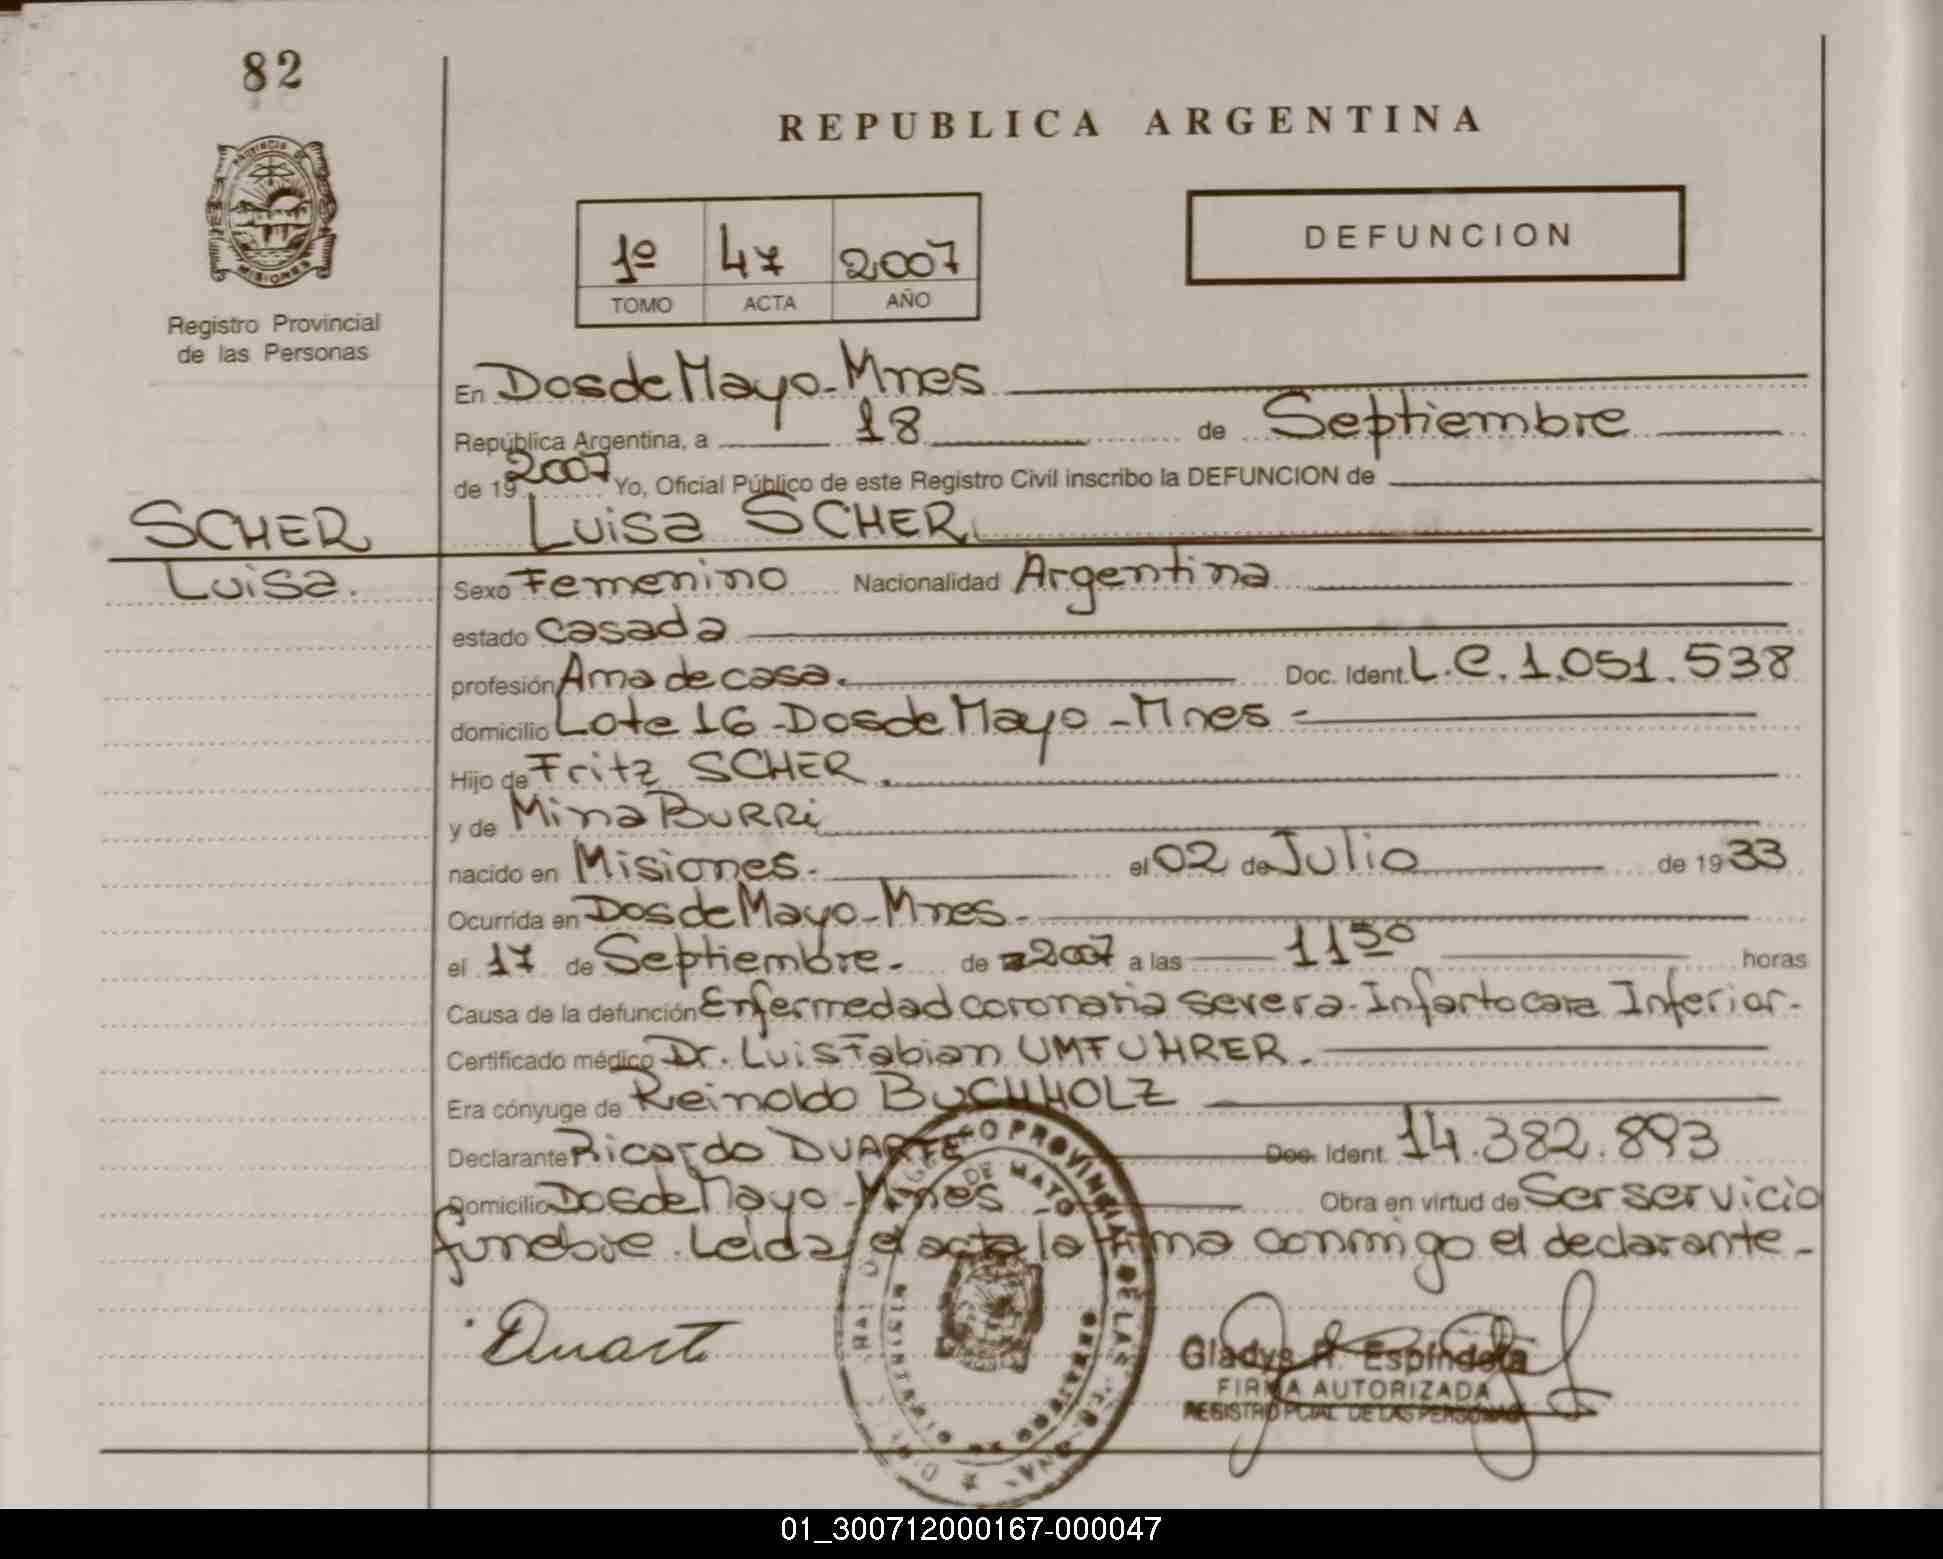 82
REPUBLICA ARGENTINA
PROVINCIA DE
MISIONES
Registro Provincial
de las Personas
1º 47 2007
TOMO ACTA AÑO
DEFUNCION
En Dos de Mayo - Mnes
República Argentina, a 18 de Septiembre
de 19 2007 Yo, Oficial Público de este Registro Civil inscribo la DEFUNCION de
SCHER
Luisa.
Luisa SCHER
Sexo Femenino Nacionalidad Argentina
estado casada
profesión Ama de casa. Doc. Ident. L.C. 1.051.538
domicilio Lote 16 - Dos de Mayo - Mnes -
Hijo de Fritz SCHER.
y de Mina BURRi
nacido en Misiones. el 02 de Julio de 19 33
Ocurrida en Dos de Mayo - Mnes.
el 17 de Septiembre. de 2007 a las 11 50 horas
Causa de la defunción Enfermedad coronaria severa - Infarto cara Inferior.
Certificado médico Dr. Luis Fabian UMFUHRER.
Era cónyuge de Reinoldo BUCHHOLZ
Declarante Ricardo DUARTE Doc. Ident. 14.382.893
Domicilio Dos de Mayo - Mnes Obra en virtud de Ser servicio
funebre. Leida el acta la firma conmigo el declarante.
Duarte
Gladys R. Espíndola
FIRMA AUTORIZADA
REGISTRO PCIAL DE LAS PERSONAS
01_300712000167-000047